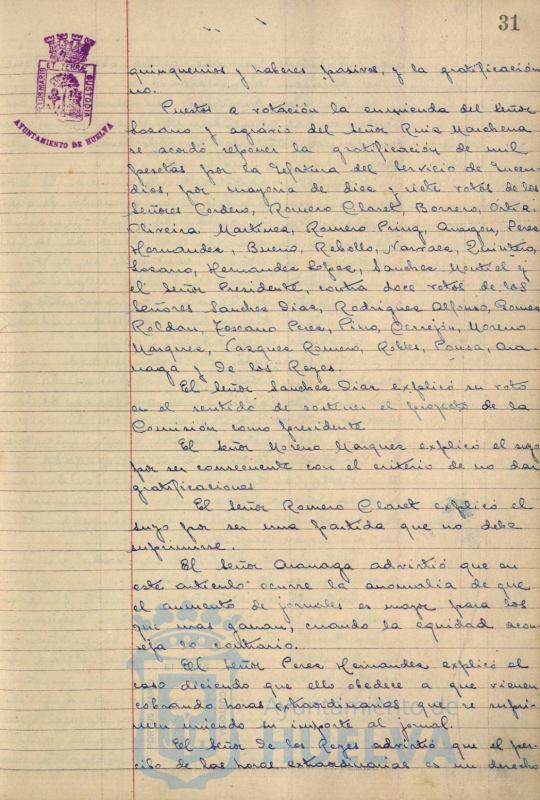 31
PORTUM MARIS ET TERRAE CUSTODIA
AYUNTAMIENTO DE HUELVA
quinquenios y haberes pasivos, y la gratificación
no.
Puestos a votación la enmienda del Señor
Lozano y agrário del Señor Ruiz Marchena
se acordó reponer la gratificación de mil
pesetas por la Jefatura del Servicio de Incen-
dios, por mayoria de diez y siete votos de los
Señores Cordero, Romero Claret, Borrero, Ortiz,
Oliveira, Martinez, Romero Pring, Aragon, Perez
Hernandez, Bueno, Rebollo, Narvaez, Quintero,
Lozano, Hernandez López, Sanchez Montiel y
el Señor Presidente, contra doce votos de los
Señores Sanchez Diaz, Rodriguez Alfonso, Gomez
Roldan, Toscano Perez, Pino, Cerrejón, Moreno
Marquez, Vazquez Romero, Robles, Ponsa, Ara-
naga y de los Reyes.
El Señor Sanchez Diaz explicó su voto
en el sentido de sostener el proyecto de la
Comisión como presidente
El Señor Moreno Marquez explicó el suyo
por ser consecuente con el criterio de no dar
gratificaciones
El Señor Romero Claret explicó el
suyo por ser una partida que no debe
suprimirse.
El Señor Aranaga advirtió que en
este artículo ocurre la anomalia de que
el aumento de jornales es mayor para los
que mas ganan, cuando la equidad acon-
seja lo contrario.
El Señor Perez Hernandez explicó el
caso diciendo que ello obedece a que vienen
cobrando horas extraordinarias, que se supri-
men uniendo su importe al jornal.
El Señor de los Reyes advirtió que el per-
cibo de las horas extraordinarias es un derecho
Ayuntamiento de
HUELVA